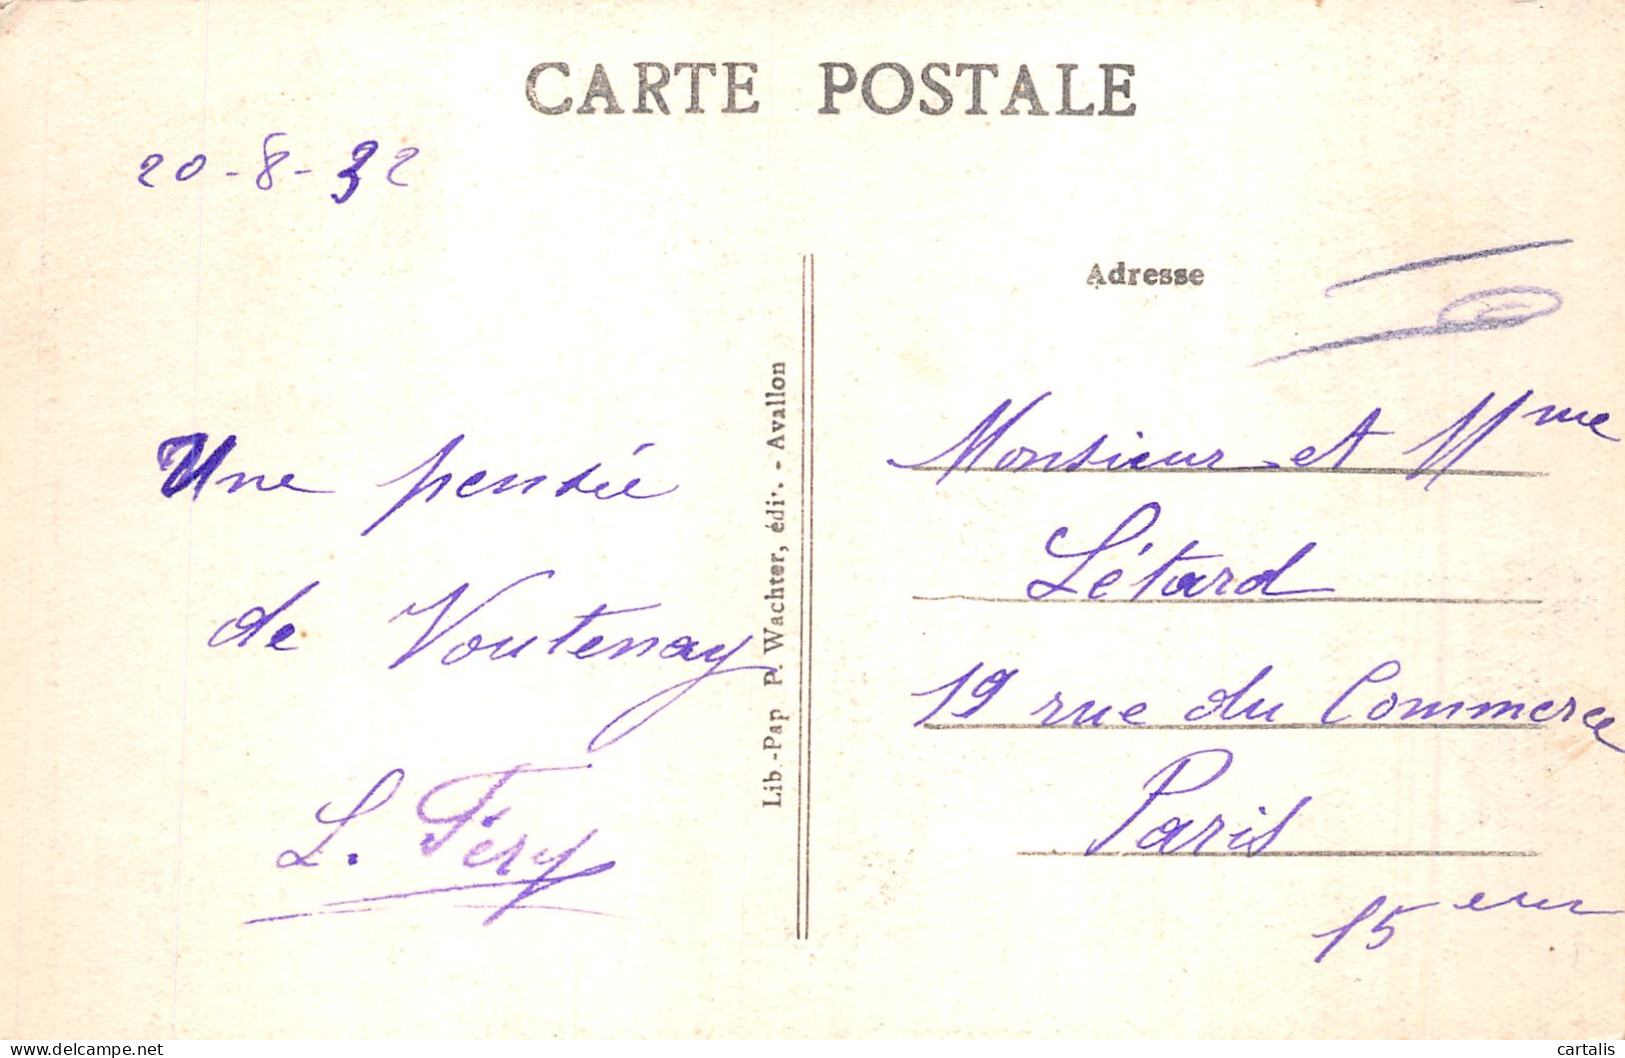 CARTE POSTALE
20-8-32
Adresse
Une pensée
de Voutenay
L. Féry
Lib.-Pap P. Wachter, édit. - Avallon
Monsieur et Mme
Létard
19 rue du Commerce
Paris
15eme
www.delcampe.net
cartalis